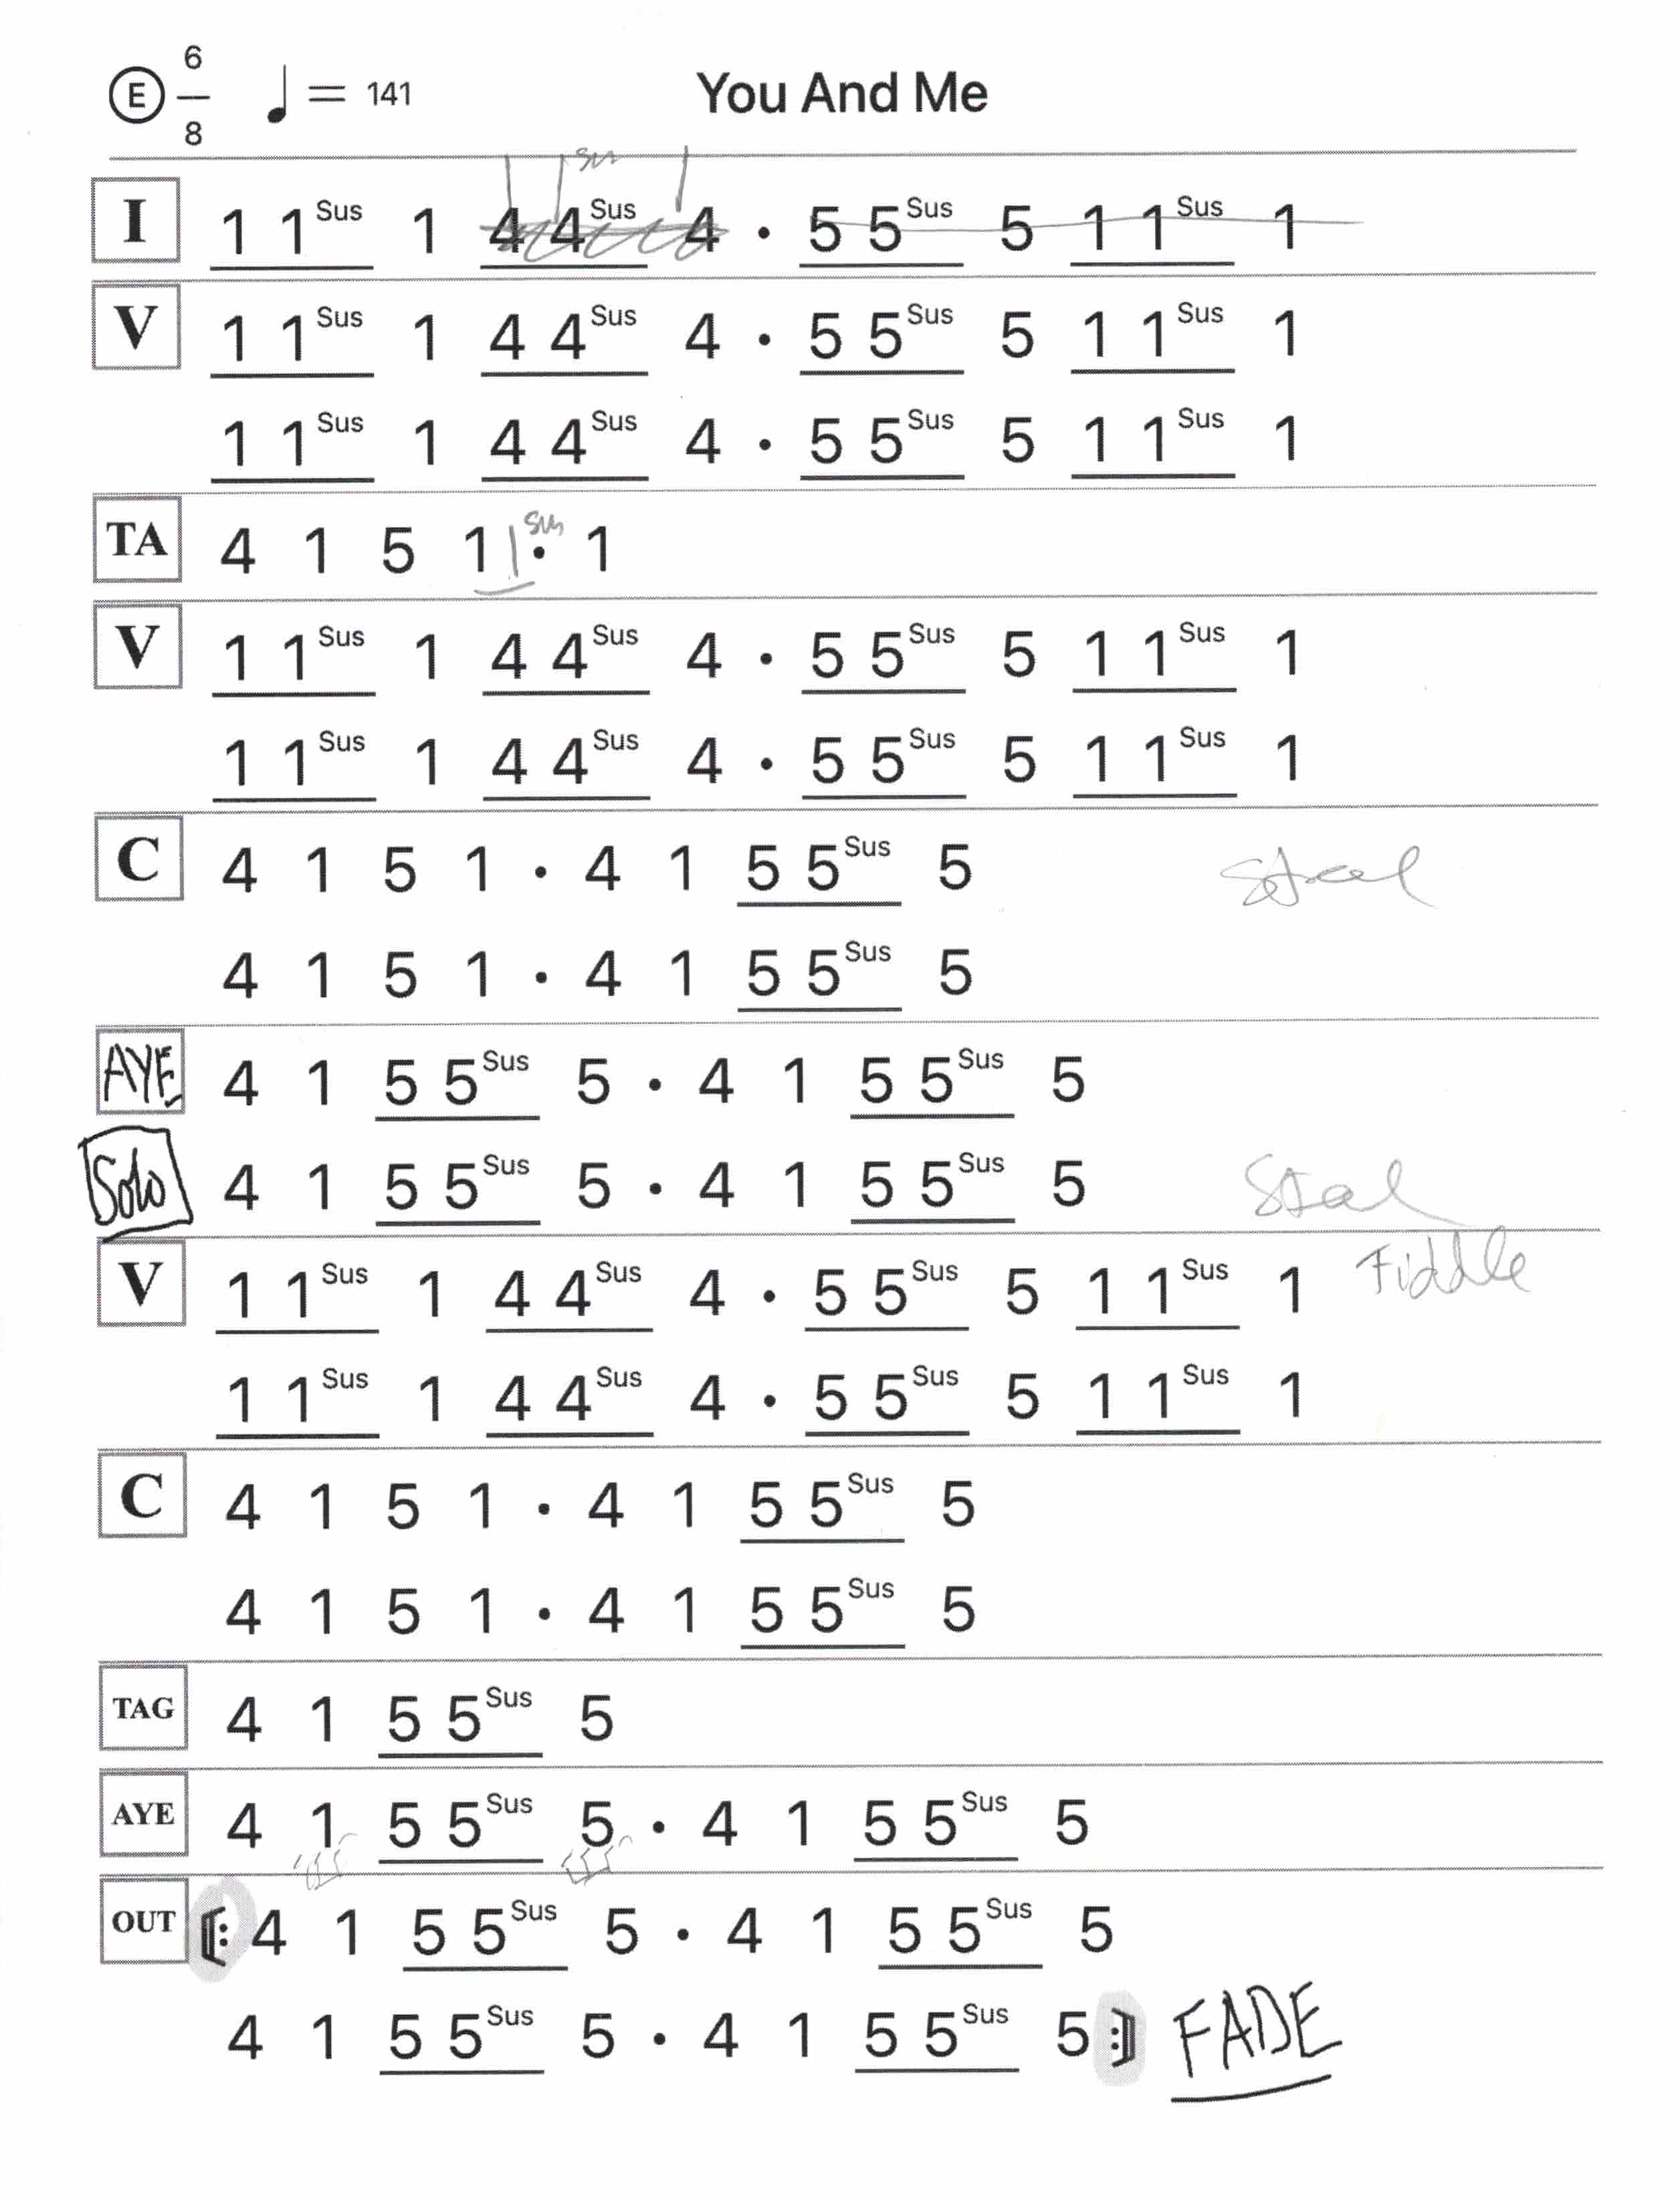 E 6/8 ♩ = 141 You And Me
sus
I 1 1Sus 1 4 4Sus 4 • 5 5Sus 5 1 1Sus 1
V 1 1Sus 1 4 4Sus 4 • 5 5Sus 5 1 1Sus 1
1 1Sus 1 4 4Sus 4 • 5 5Sus 5 1 1Sus 1
TA 4 1 5 1 1sus • 1
V 1 1Sus 1 4 4Sus 4 • 5 5Sus 5 1 1Sus 1
1 1Sus 1 4 4Sus 4 • 5 5Sus 5 1 1Sus 1
C 4 1 5 1 • 4 1 5 5Sus 5 Steel
4 1 5 1 • 4 1 5 5Sus 5
AYE 4 1 5 5Sus 5 • 4 1 5 5Sus 5
Solo 4 1 5 5Sus 5 • 4 1 5 5Sus 5 Steel
V 1 1Sus 1 4 4Sus 4 • 5 5Sus 5 1 1Sus 1 Fiddle
1 1Sus 1 4 4Sus 4 • 5 5Sus 5 1 1Sus 1
C 4 1 5 1 • 4 1 5 5Sus 5
4 1 5 1 • 4 1 5 5Sus 5
TAG 4 1 5 5Sus 5
AYE 4 1 5 5Sus 5 • 4 1 5 5Sus 5
OUT 𝄆 4 1 5 5Sus 5 • 4 1 5 5Sus 5
4 1 5 5Sus 5 • 4 1 5 5Sus 5 𝄇 FADE